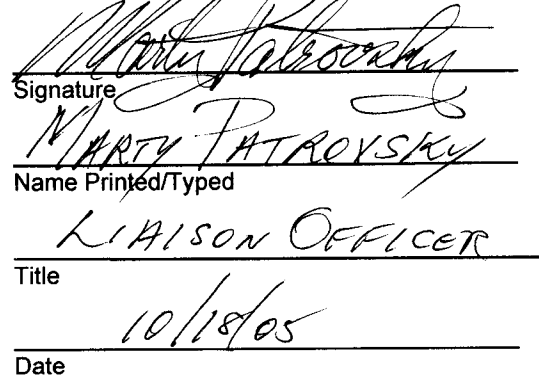 Marty Patrovsky
Signature
MARTY PATROVSKY
Name Printed/Typed
LIAISON OFFICER
Title
10/18/05
Date